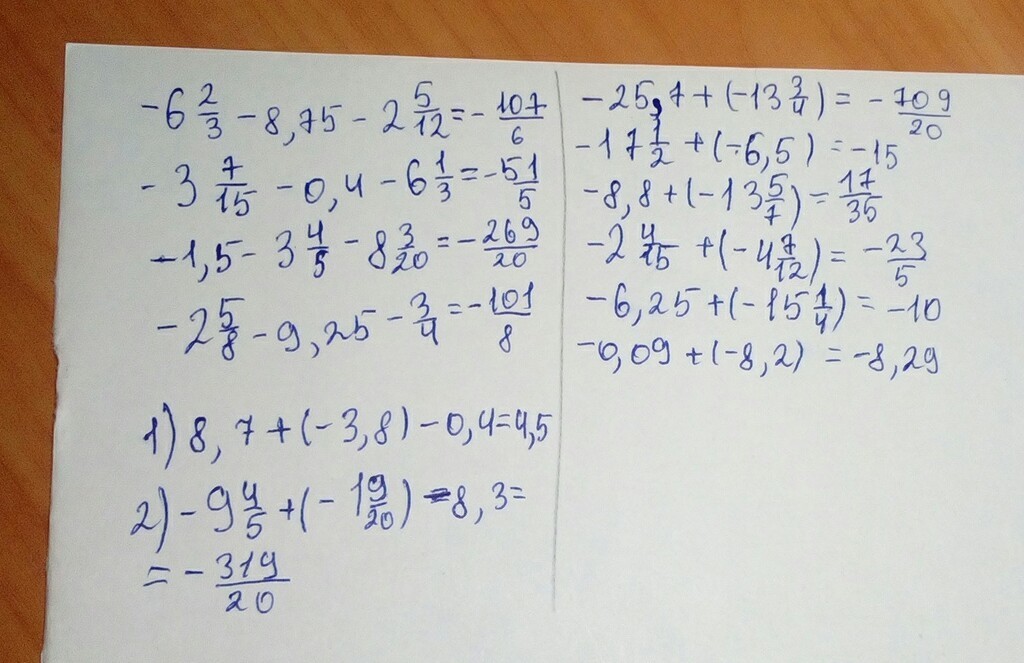 -6 2/3 - 8,75 - 2 5/12 = - 107/6
- 3 7/15 - 0,4 - 6 1/3 = - 51/5
-1,5 - 3 4/5 - 8 3/20 = - 269/20
- 2 5/8 - 9,25 - 3/4 = - 101/8
1) 8,7 + (-3,8) - 0,4 = 4,5
2) - 9 4/5 + (- 1 9/20) - 8,3 =
= - 319/20
- 25,7 + (-13 3/4) = - 709/20
- 17 1/2 + (-6,5) = -15
-8,8 + (-13 5/7) = 17/35
-2 4/15 + (-4 7/12) = - 23/5
-6,25 + (-15 1/4) = -10
-0,09 + (-8,2) = -8,29